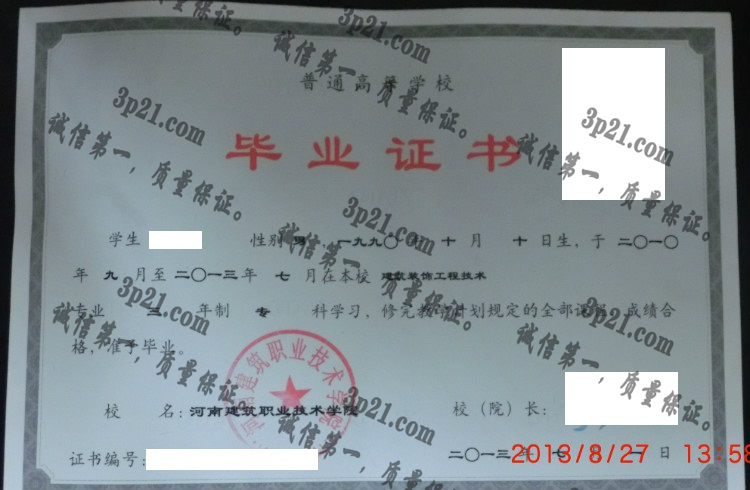 普通高等学校
毕业证书
学生 性别 男，一九九〇年 十 月 十 日生，于 二〇一〇
年 九 月至 二〇一三年 七 月在本校 建筑装饰工程技术
专业 三 年制 专 科学习，修完教学计划规定的全部课程，成绩合
格，准予毕业。
校 名：河南建筑职业技术学院 校（院）长：
证书编号： 二〇一三年 七 月 一 日
2013/8/27 13:58
河南建筑职业技术学院
3p21.com
诚信第一，质量保证。
3p21.com
诚信第一，质量保证。
3p21.com
诚信第一，质量保证。
3p21.com
诚信第一，质量保证。
3p21.com
诚信第一，质量保证。
3p21.com
诚信第一，质量保证。
3p21.com
诚信第一，质量保证。